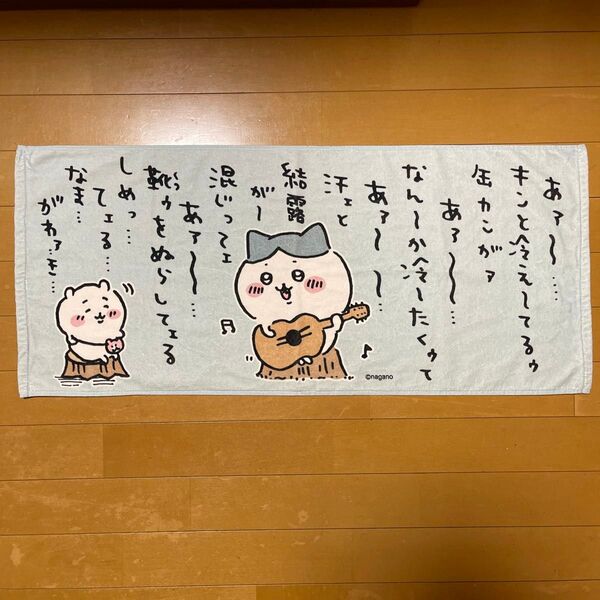 あァ〜…
キンと冷えしてるゥ
缶カンがァ
あァ〜〜…
なん〜か冷〜たくゥて
あァ〜〜…
汗ェと
結露
がー
混じってェ
あァ〜〜…
靴ゥをぬらしてェる
くつ
しめっ…
てェる…
なま…
がわァき…
©nagano